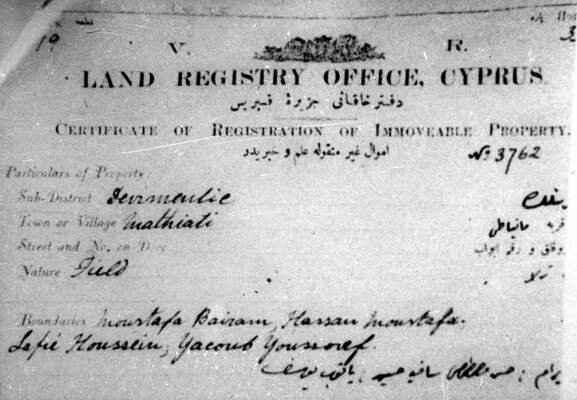 19
V. R.
LAND REGISTRY OFFICE, CYPRUS.
دفتر خاقانی جزیرهٔ قبریس
CERTIFICATE OF REGISTRATION OF IMMOVEABLE PROPERTY.
اموال غیر منقوله علم و خبریدر
No 3762
Particulars of Property:
Sub-District Devimenlic
Town or Village Mathiati
قریه ماتیاطی
Street and No. on Door
سوقاق و رقم ابواب
Nature Field
تارلا
Boundaries Moustafa Bairam, Hassan Moustafa.
Safie Houssein; Yacoub Youssouf.